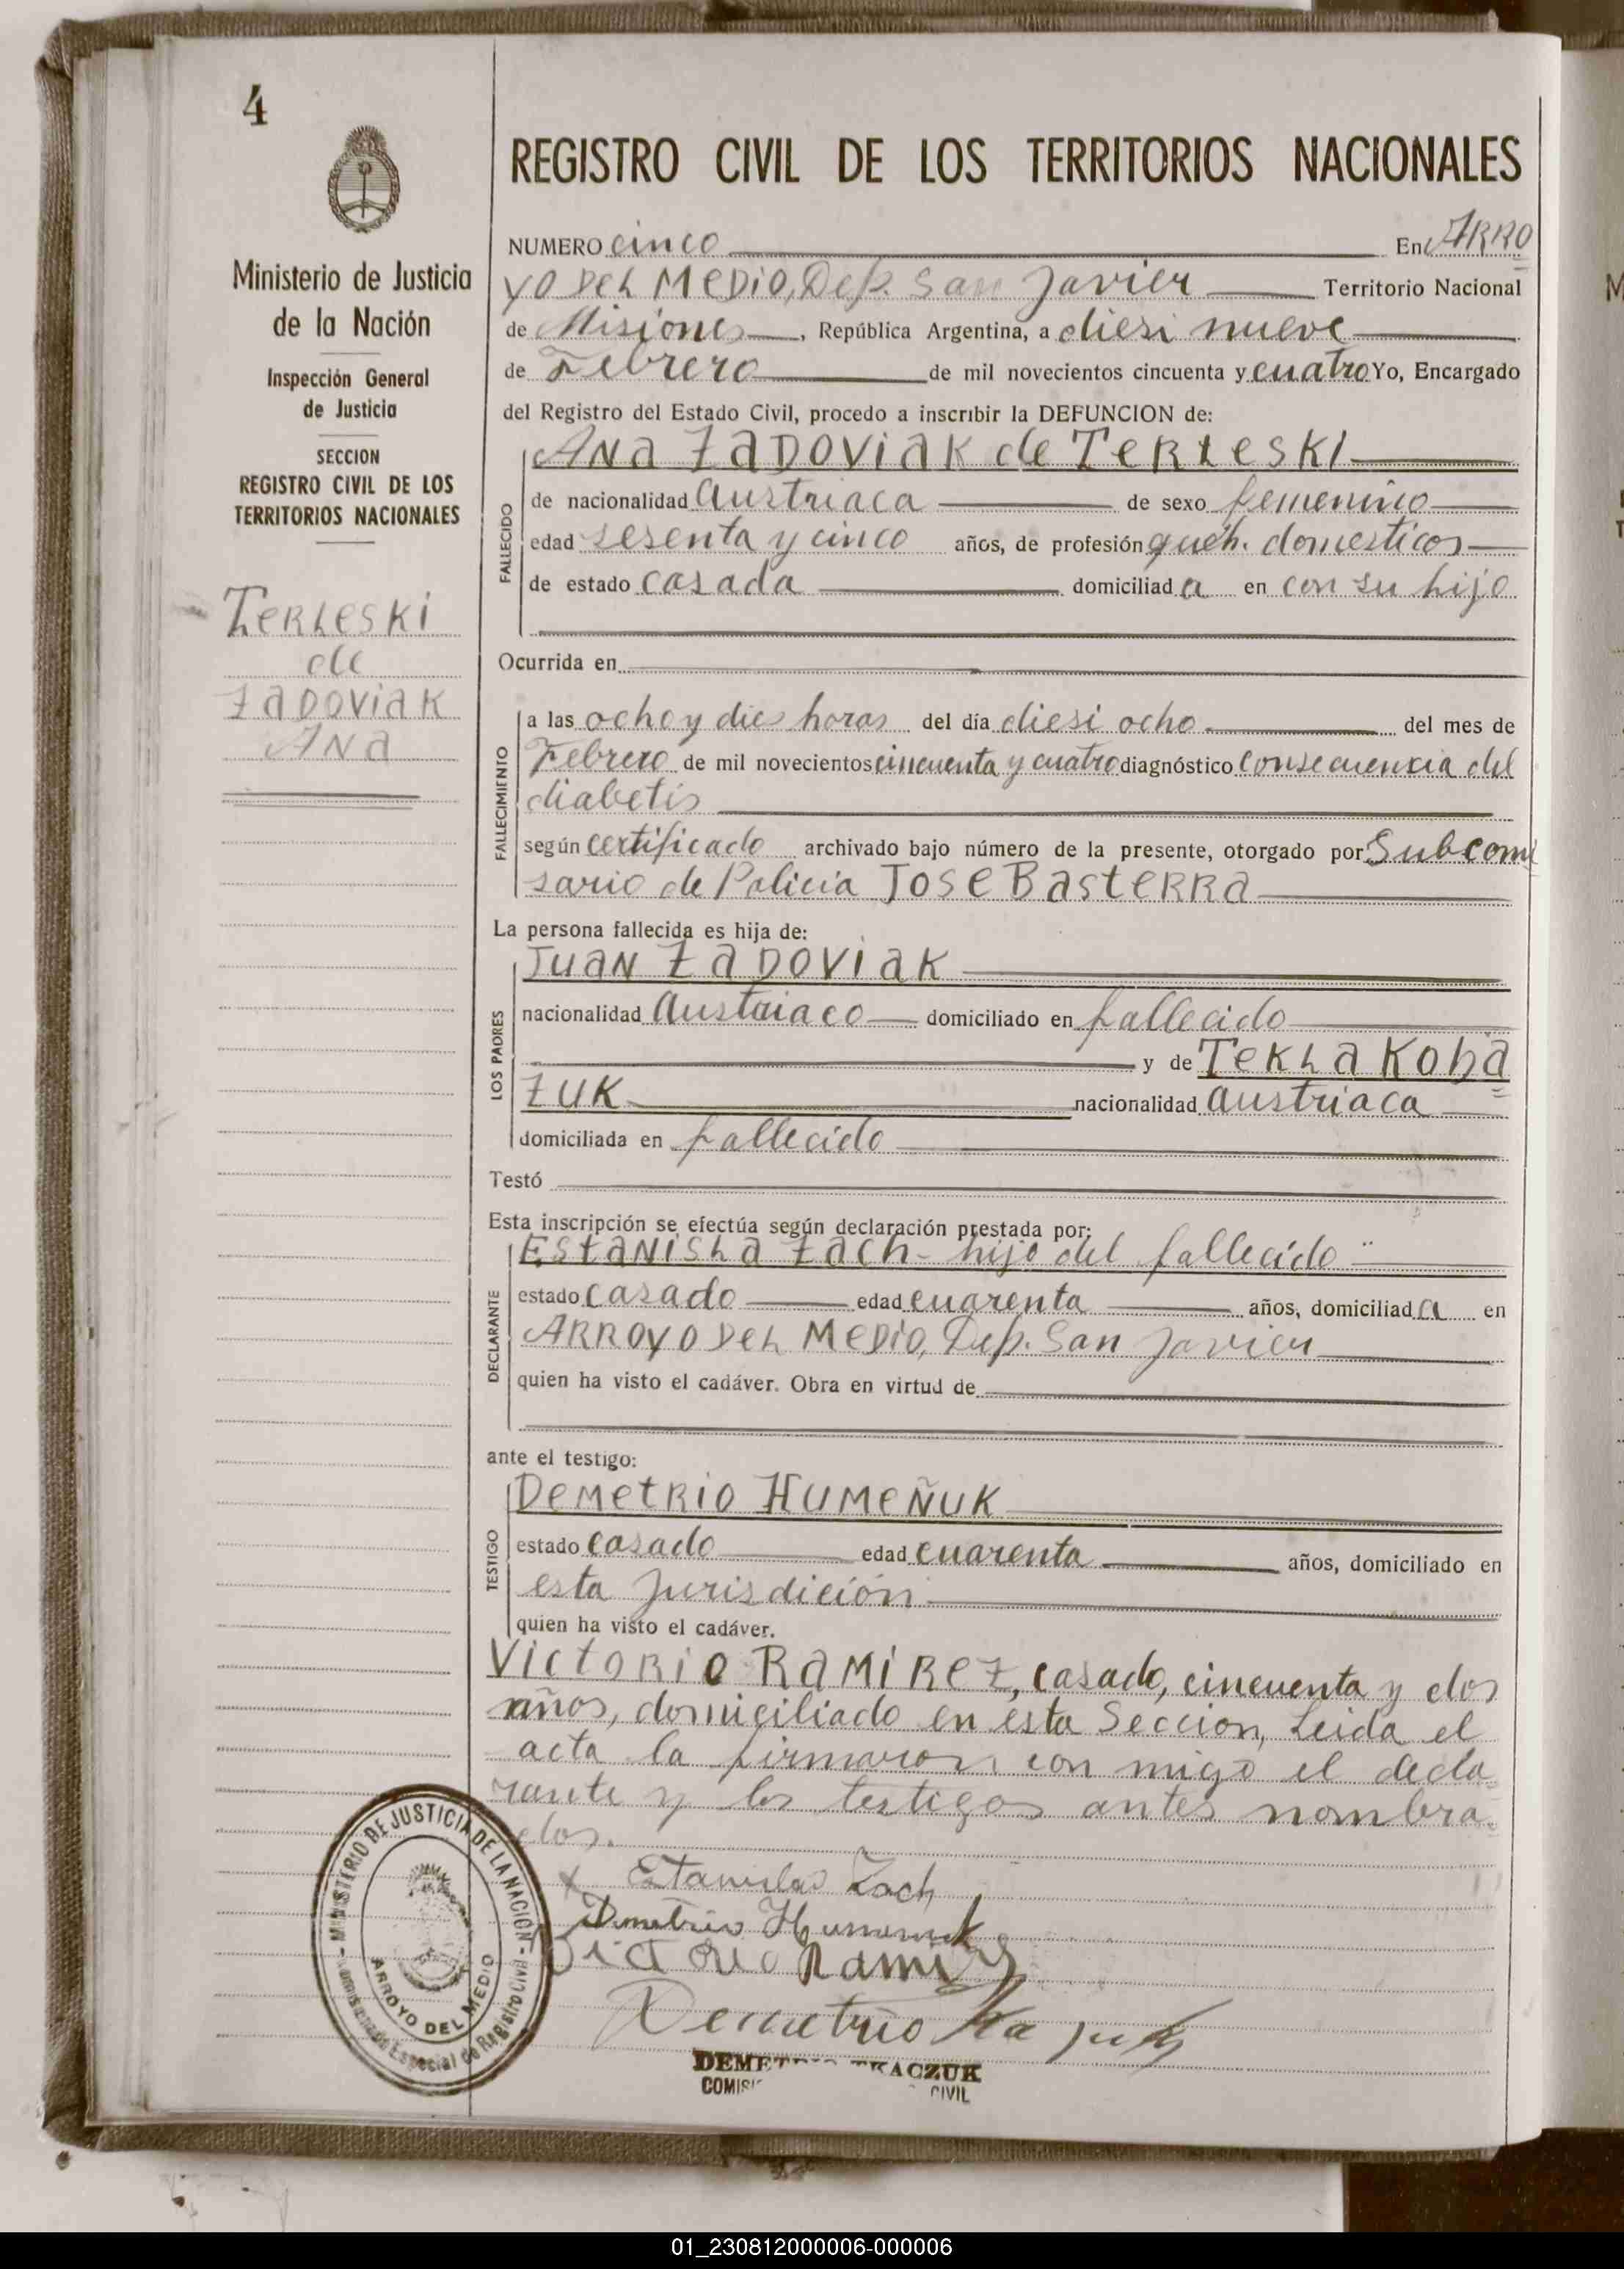 4
Ministerio de Justicia
de la Nación
Inspección General
de Justicia
SECCION
REGISTRO CIVIL DE LOS
TERRITORIOS NACIONALES
TERLESKI
de
ZADOVIAK
ANA
REGISTRO CIVIL DE LOS TERRITORIOS NACIONALES
NUMERO cinco En ARRO
YO DEL MEDIO, Dep. San Javier Territorio Nacional
de Misiones, República Argentina, a diesi nueve
de Febrero de mil novecientos cincuenta y cuatro Yo, Encargado
del Registro del Estado Civil, procedo a inscribir la DEFUNCION de:
ANA ZADOVIAK de TERLESKI
FALLECIDO
de nacionalidad Austriaca de sexo femenino
edad sesenta y cinco años, de profesión queh. domesticos
de estado casada domiciliada en con su hijo
Ocurrida en
FALLECIMIENTO
a las ocho y dies horas del día diesi ocho del mes de
Febrero de mil novecientos cincuenta y cuatro diagnóstico consecuencia del
diabetis
según certificado archivado bajo número de la presente, otorgado por Subcomi
sario de Policia JOSE BASTERRA
La persona fallecida es hija de:
JUAN ZADOVIAK
LOS PADRES
nacionalidad Austriaco domiciliado en fallecido
y de TEKLA KOBA
ZUK nacionalidad austriaca
domiciliada en fallecido
Testó
Esta inscripción se efectúa según declaración prestada por:
ESTANISLA ZACH - hijo del fallecido
DECLARANTE
estado casado edad cuarenta años, domiciliada en
ARROYO DEL MEDIO, Dep. San Javier
quien ha visto el cadáver. Obra en virtud de
ante el testigo:
DEMETRIO HUMEÑUK
TESTIGO
estado casado edad cuarenta años, domiciliado en
esta jurisdición
quien ha visto el cadáver.
VICTORIO RAMIREZ, casado, cincuenta y dos
años, domiciliado en esta Seccion, Leida el
acta la firmaron con migo el decla
rante y los testigos antes nombra
dos.
Estanislao Zach
Demetrio Humenuk
Victorio Ramirez
Demetrio Tkaczuk
DEMETRIO TKACZUK
COMIS CIVIL
MINISTERIO DE JUSTICIA DE LA NACION
ARROYO DEL MEDIO
Especial de Registro Civil
01_230812000006-000006